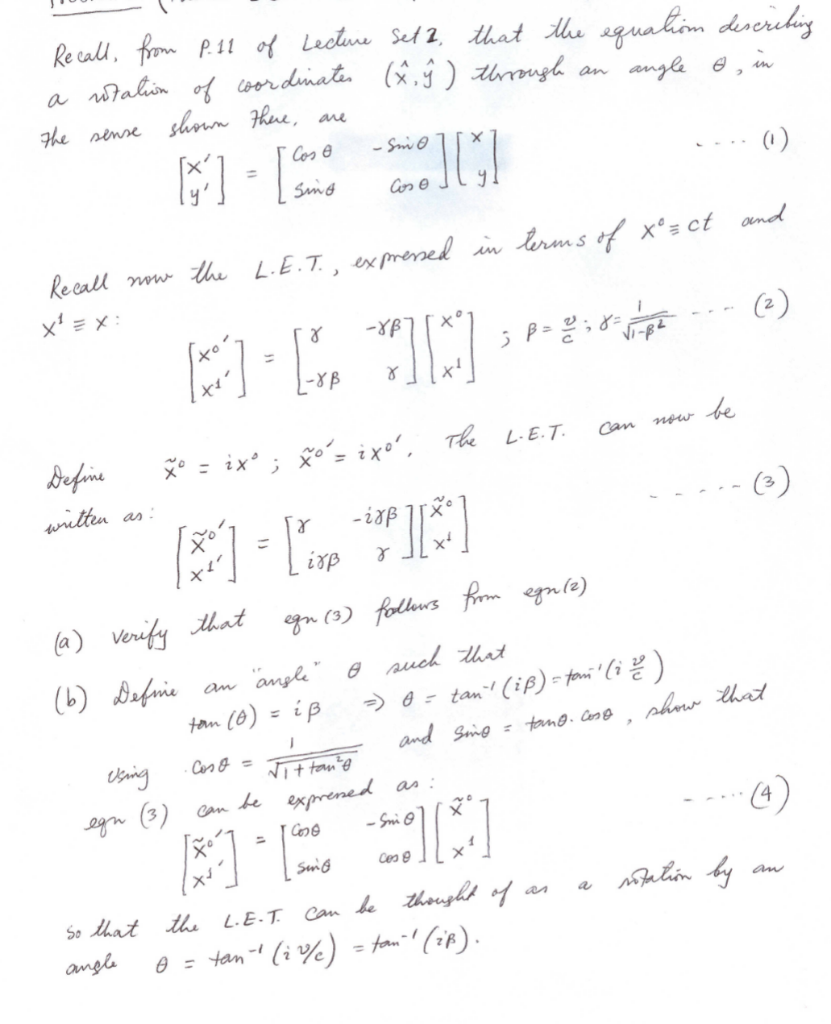 Recall, from P.11 of Lecture Set 2, that the equation describing
a rotation of coordinates (x̂, ŷ) through an angle θ, in
the sense shown there, are
[x' y'] = [Cos θ -Sin θ Sin θ Cos θ] [x y] ..... (1)
Recall now the L.E.T., expressed in terms of x⁰ ≡ ct and
x¹ ≡ x:
[x⁰' x¹'] = [γ -γβ -γβ γ] [x⁰ x¹] ; β = v/c ; γ = 1/√(1-β²) .... (2)
Define x̃⁰ = ix⁰ ; x̃⁰' = ix⁰'. The L.E.T. can now be
written as:
[x̃⁰' x¹'] = [γ -iγβ iγβ γ] [x̃⁰ x¹] ..... (3)
(a) Verify that eqn (3) follows from eqn (2)
(b) Define an "angle" θ such that
tan (θ) = iβ ⇒ θ = tan⁻¹ (iβ) = tan⁻¹ (i v/c)
Using Cos θ = 1/√(1 + tan²θ) and Sin θ = tan θ . Cos θ , show that
eqn (3) can be expressed as :
[x̃⁰' x¹'] = [Cos θ -Sin θ Sin θ Cos θ] [x̃⁰ x¹] ..... (4)
So that the L.E.T. can be thought of as a rotation by an
angle θ = tan⁻¹ (i v/c) = tan⁻¹ (iβ).